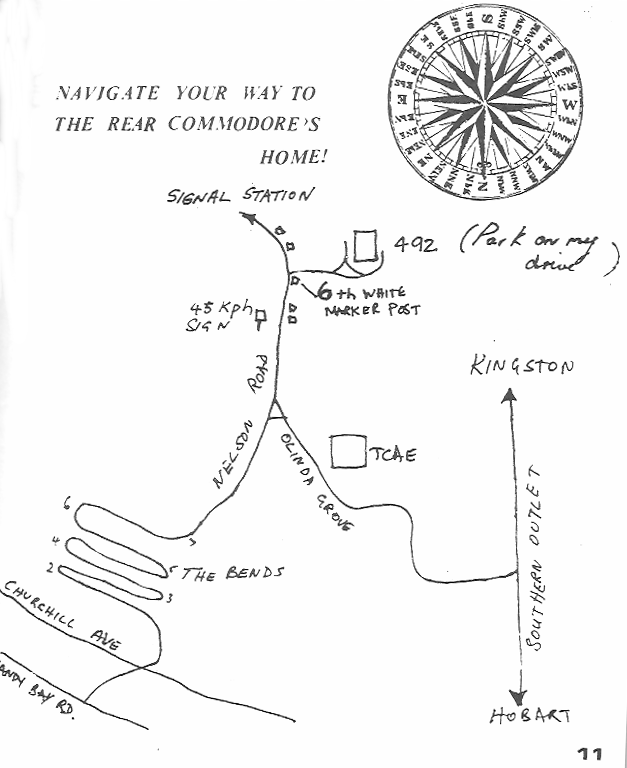 NAVIGATE YOUR WAY TO
THE REAR COMMODORE'S
HOME!
SIGNAL STATION
492 (Park on my
drive)
6th WHITE
MARKER POST
45 Kph
SIGN
KINGSTON
NELSON ROAD
OLINDA GROVE
TCAE
SOUTHERN OUTLET
6
7
4
5 THE BENDS
2
3
CHURCHILL AVE
ANDY BAY RD.
HOBART
11
S
W
N
E
SW
NW
NE
SE